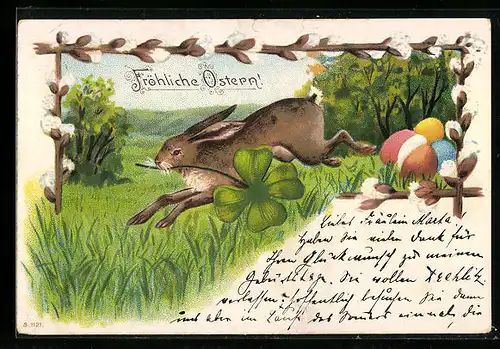 Fröhliche Ostern!
Liebes Fräulein Marta!
haben Sie vielen Dank für
Ihren Glückwunsch zu meinem
Geburtstage. Sie wollen
verlassen - hoffentlich besuchen Sie dann
uns aber im Laufe des Sommers einmal, die
S. 1121.